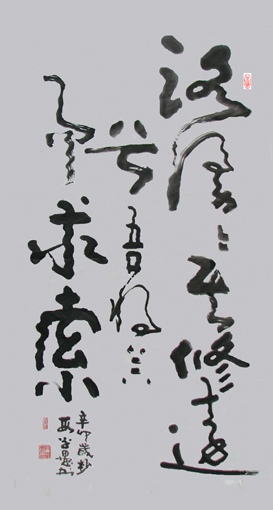 路漫〻其修遠
兮吾将上下
而求索
辛卯歲杪